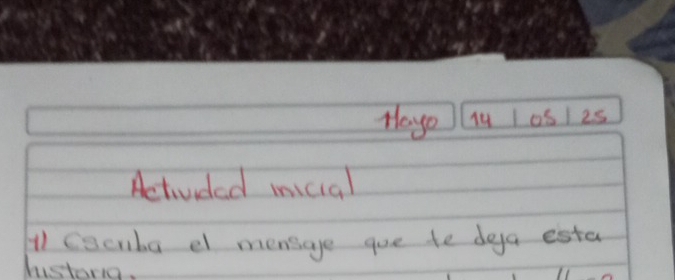 Mayo 14 | 05 | 25
Actividad inicial
1) Escriba el mensaje que te deja esta
historia.